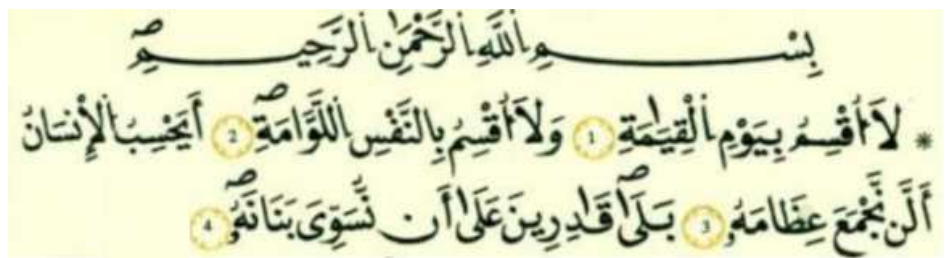 بِسْمِ اِللَّهِ اِلرَّحْمَٰنِ اِلرَّحِيمِ
* لَا أُقْسِمُ بِيَوْمِ اِلْقِيَٰمَةِ 1 وَلَا أُقْسِمُ بِالنَّفْسِ اِللَّوَّامَةِ 2 أَيَحْسِبُ اُلْإِنسَانُ
أَلَّن نَّجْمَعَ عِظَامَهُۥ 3 بَلَىٰ قَادِرِينَ عَلَىٰ أَن نُّسَوِّىَ بَنَانَهُۥ 4